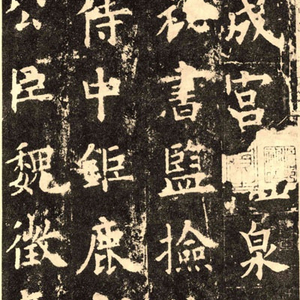 成宮泉
書監撿
侍中鉅鹿
公臣魏徵